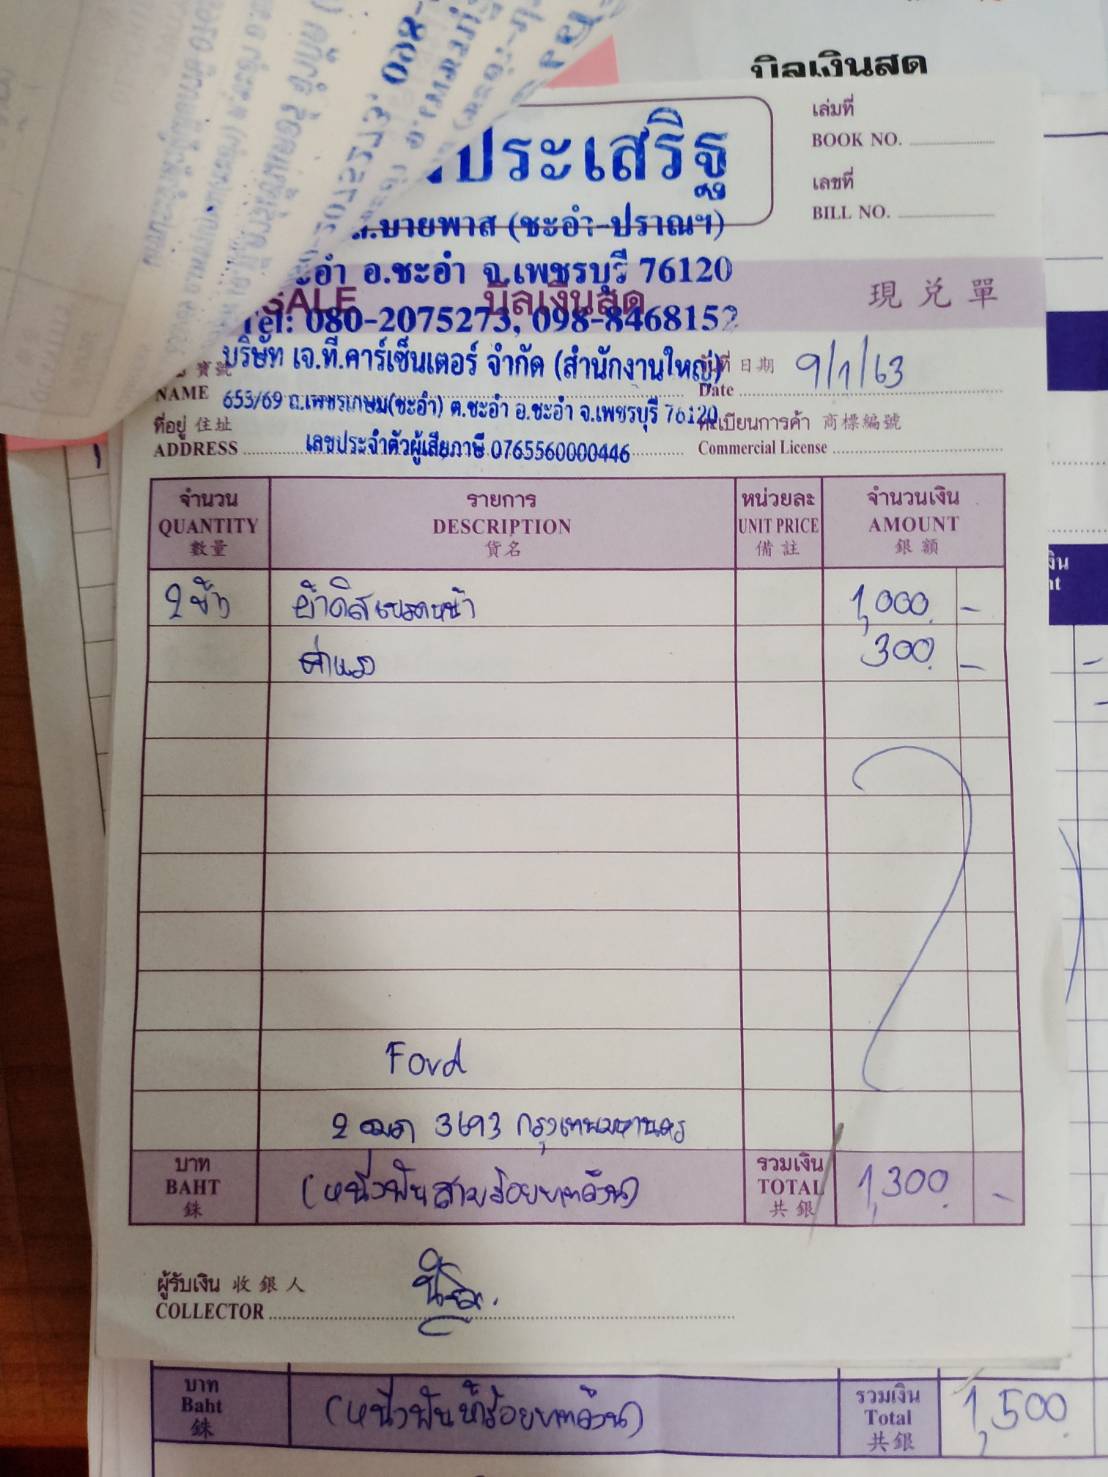 บิลเงินสด
เล่มที่
BOOK NO.
ประเสริฐ
เลขที่
BILL NO.
บายพาส (ชะอำ-ปราณฯ)
ชะอำ อ.ชะอำ จ.เพชรบุรี 76120
SALE บิลเงินสด 現兌單
Tel: 080-2075273, 098-8468152
บริษัท เจ.ที.คาร์เซ็นเตอร์ จำกัด (สำนักงานใหญ่)
วันที่ 日期 9/1/63
NAME Date
653/69 ถ.เพชรเกษม(ชะอำ) ต.ชะอำ อ.ชะอำ จ.เพชรบุรี 76120
ที่อยู่ 住址 ทะเบียนการค้า 商標編號
ADDRESS Commercial License
เลขประจำตัวผู้เสียภาษี 0765560000446
จำนวน รายการ หน่วยละ จำนวนเงิน
QUANTITY DESCRIPTION UNIT PRICE AMOUNT
數量 貨名 備註 銀額
2 ข้าง ผ้าดิสเบรคหน้า 1,000 -
ค่าแรง 300 -
Ford
2 ฒภ 3693 กรุงเทพมหานคร
บาท รวมเงิน
BAHT (หนึ่งพันสามร้อยบาทถ้วน) TOTAL 1,300 -
銖 共銀
ผู้รับเงิน 收銀人
COLLECTOR
บาท รวมเงิน
Baht (หนึ่งพันห้าร้อยบาทถ้วน) Total 1,500
銖 共銀